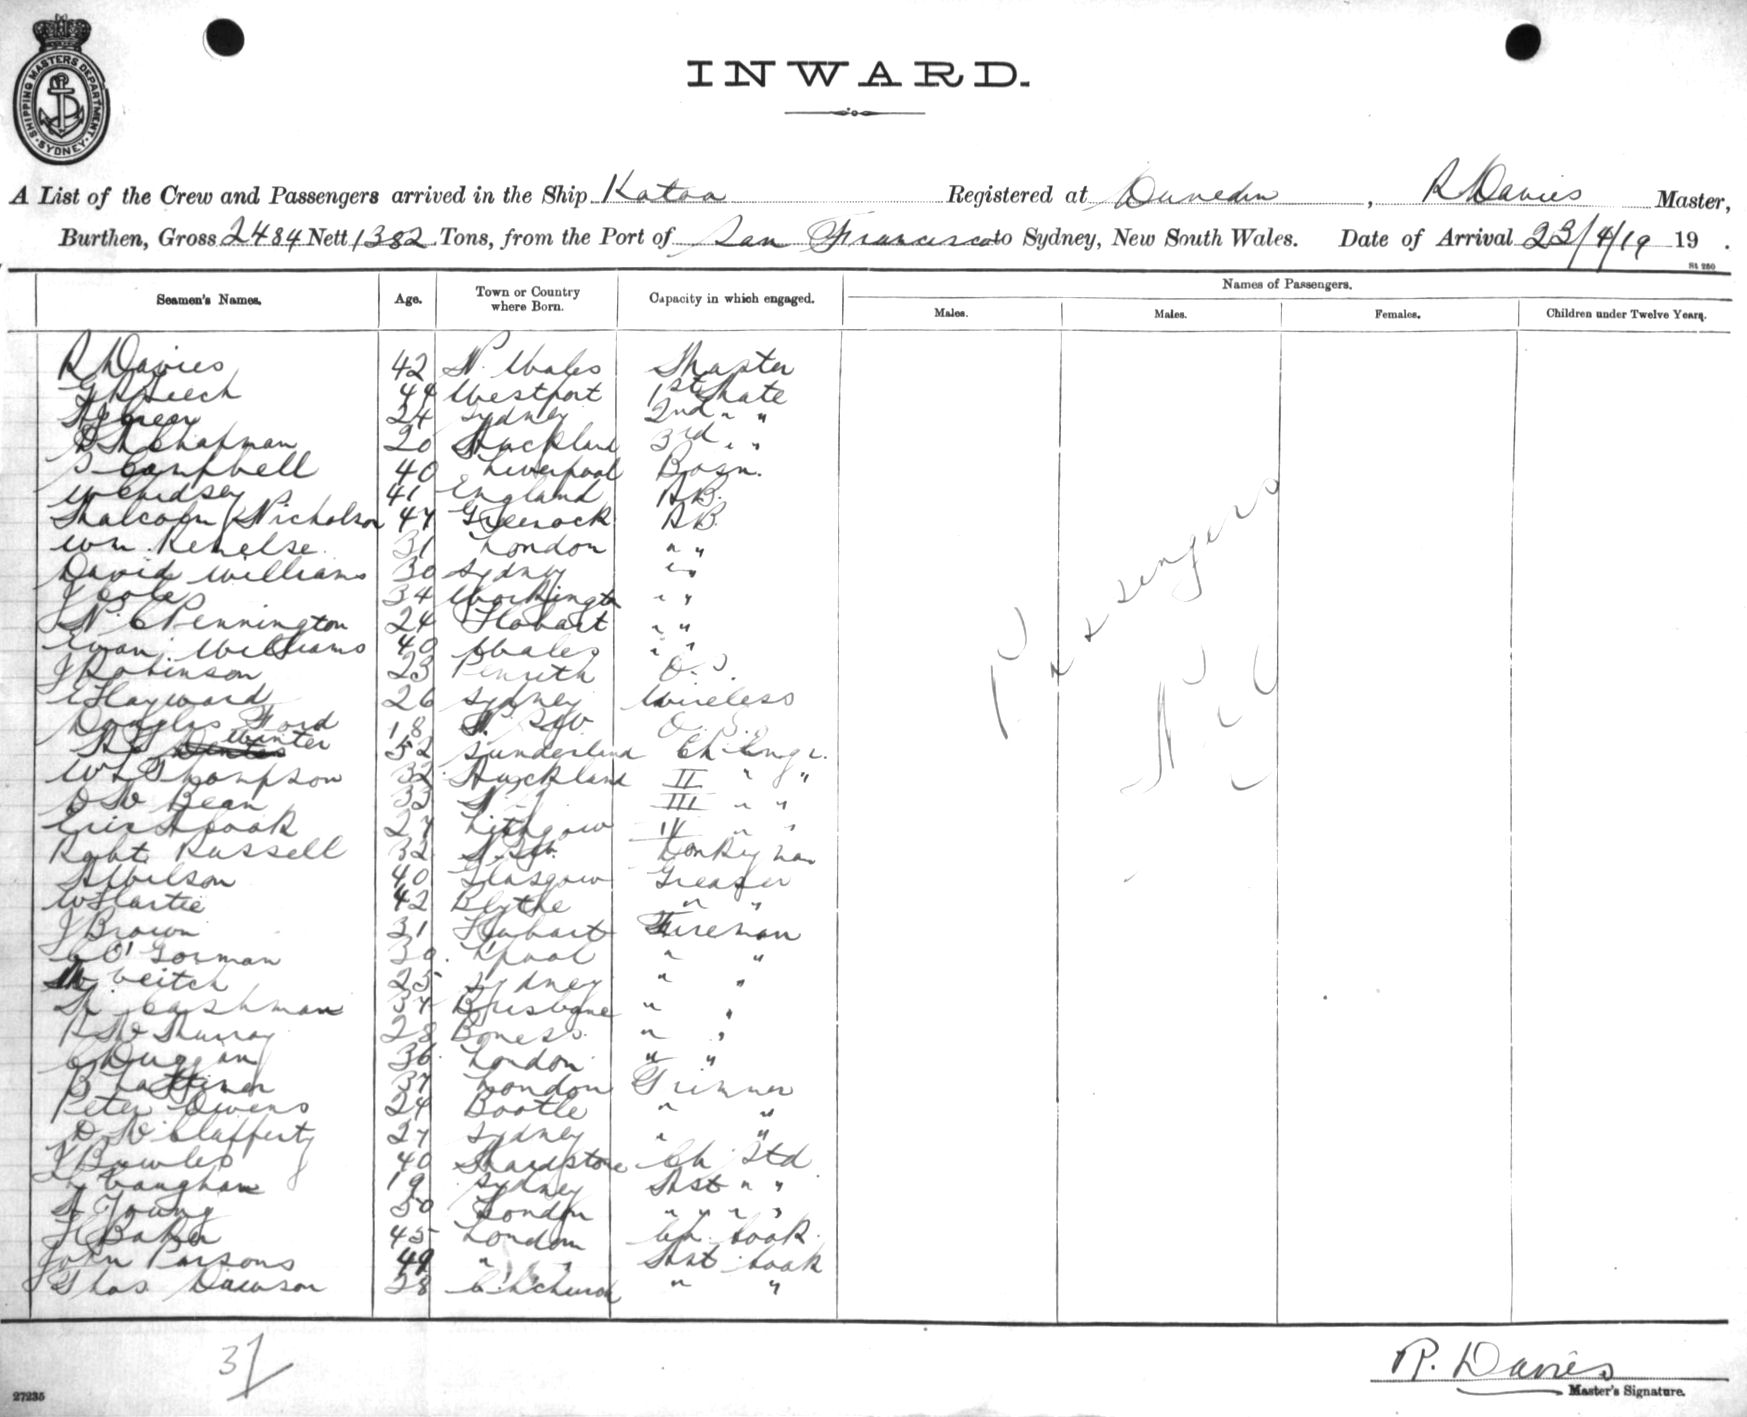 SHIPPING MASTERS DEPARTMENT
SYDNEY
INWARD.
A List of the Crew and Passengers arrived in the Ship Katoa Registered at Dunedin, R Davies Master,
Burthen, Gross 2484 Nett 1382 Tons, from the Port of San Francisco to Sydney, New South Wales. Date of Arrival 23/4/19 19 .
St 260
Seamen's Names. Age. Town or Country where Born. Capacity in which engaged. Names of Passengers.
Males. Males. Females. Children under Twelve Years.
R Davies 42 N. Wales Master
Leech 44 Westport 1st Mate
24 Sydney 2nd " "
Chapman 20 Auckland 3rd " "
Campbell 40 Liverpool Bosn.
41 England A B.
Malcolm Nicholson 47 Greenock A B
Wm. 31 London " "
David Williams 30 Sydney " "
J Cole 34 Workington " "
N. C Pennington 24 Hobart " "
Evan Williams 40 Wales " "
J Robinson 23 Penrith O.S.
Hayward 26 Sydney Wireless
Douglas Ford 18 N. O.S.
Winter 52 Sunderland Ch. Engr.
Thompson 32 Auckland II " "
Bean 33 III " "
Eric Cook 27 Lithgow IV " "
Robt Russell 32 Donkeyman
A Wilson 40 Glasgow Greaser
W Hartie 42 Blythe " "
J Brown 31 Hobart Fireman
C O'Gorman 30 L'pool " "
Veitch 25 Sydney " "
Cashman 37 Brisbane " "
Murray 28 Boness " "
C Duggan 36 London " "
B 37 London Trimmer
Peter Owens 24 Bootle " "
Clafferty 27 Sydney " "
Bowles 40 Maidstone Ch Std
Vaughan 19 Sydney Asst " "
A Young 50 London " " " "
H Baker 45 London Ch. Cook.
John Parsons 49 " " Asst Cook
Thos Dawson 28 C.church " "
Passengers
Nil
37
R. Davies
Master's Signature.
27235